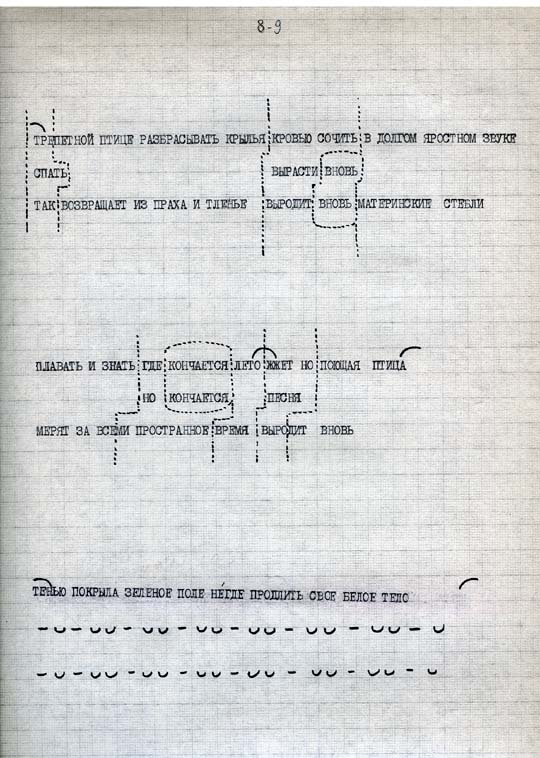 8-9
ТРЕПЕТНОЙ ПТИЦЕ РАЗБРАСЫВАТЬ КРЫЛЬЯ КРОВЬЮ СОЧИТЬ В ДОЛГОМ ЯРОСТНОМ ЗВУКЕ
СПАТЬ ВЫРАСТИ ВНОВЬ
ТАК ВОЗВРАЩАЕТ ИЗ ПРАХА И ТЛЕНЬЕ ВЫРОДИТ ВНОВЬ МАТЕРИНСКИЕ СТЕБЛИ
ПЛАВАТЬ И ЗНАТЬ ГДЕ КОНЧАЕТСЯ ЛЕТО ЖЖЕТ НО ПОЮЩАЯ ПТИЦА
НО КОНЧАЕТСЯ ПЕСНЯ
МЕРЯТ ЗА ВСЕМИ ПРОСТРАННОЕ ВРЕМЯ ВЫРОДИТ ВНОВЬ
ТЕНЬЮ ПОКРЫЛА ЗЕЛЕНОЕ ПОЛЕ НЕ́ГДЕ ПРОДЛИТЬ СВОЕ БЕЛОЕ ТЕЛО